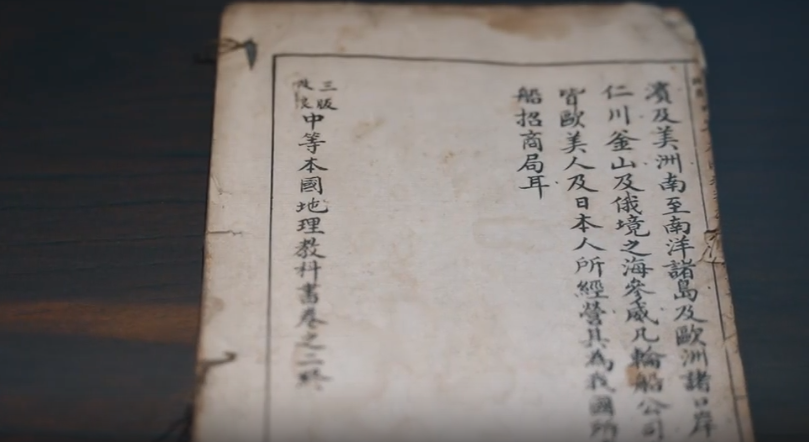 濱及美洲南至南洋諸島及歐洲諸口岸
仁川釜山及俄境之海參威凡輪船公司
皆歐美人及日本人所經營其為我國
船招商局耳
三版
中等本國地理教科書卷之二終